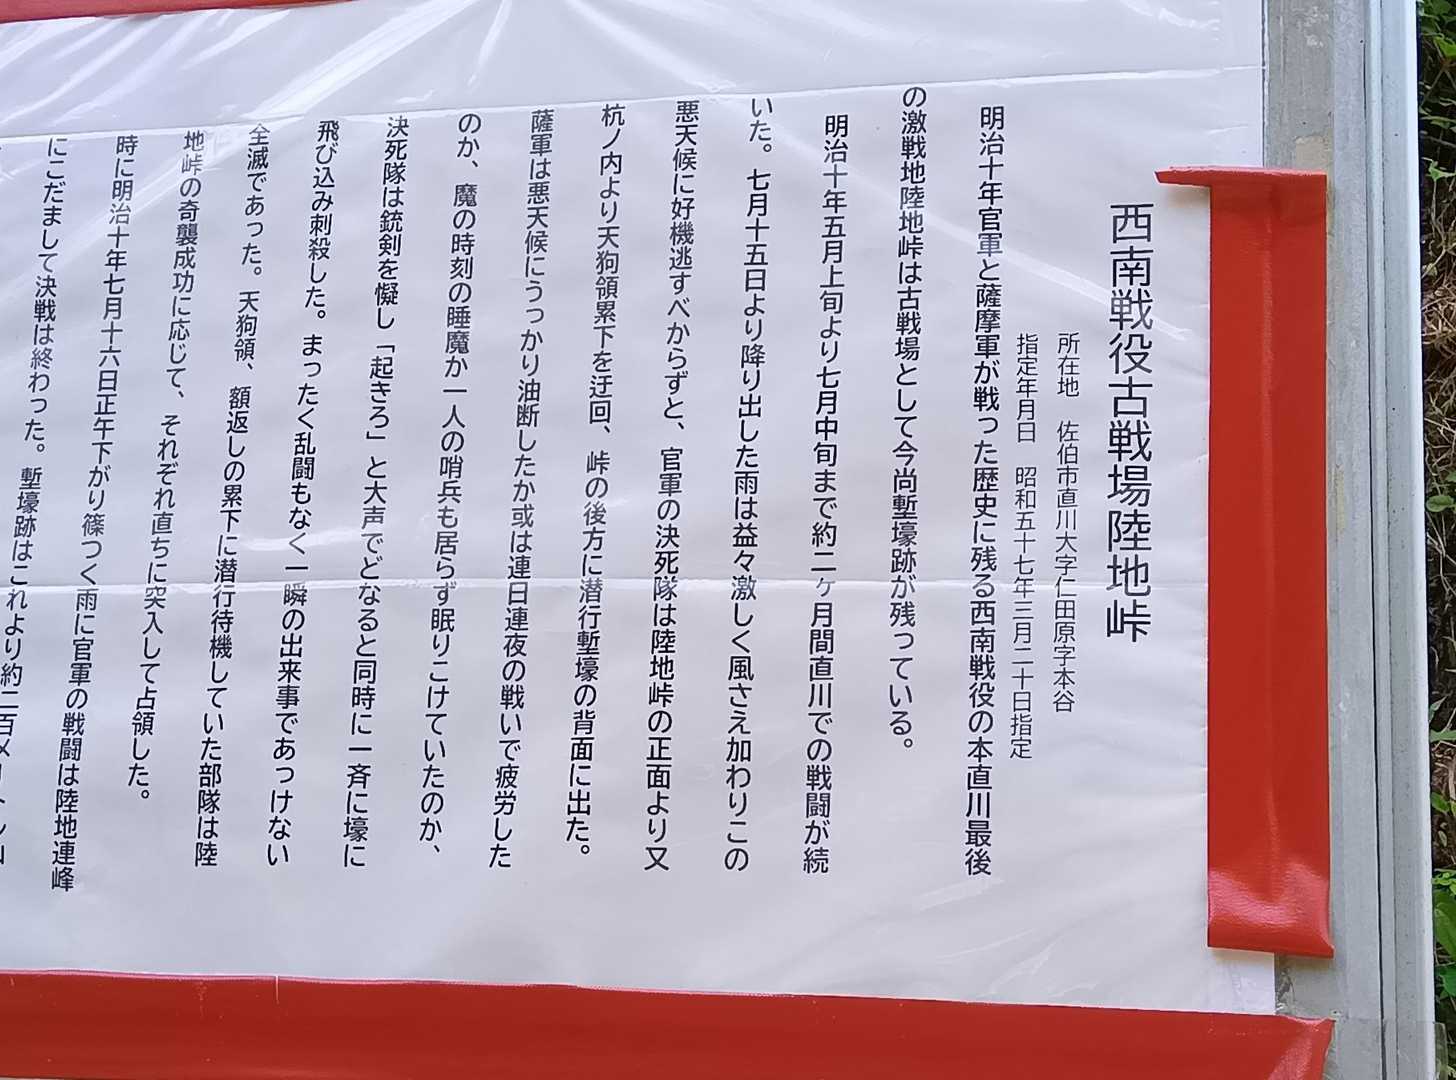 西南戦役古戦場陸地峠
所在地　佐伯市直川大字仁田原字本谷
指定年月日　昭和五十七年三月二十日指定
明治十年官軍と薩摩軍が戦った歴史に残る西南戦役の本直川最後
の激戦地陸地峠は古戦場として今尚塹壕跡が残っている。
明治十年五月上旬より七月中旬まで約二ヶ月間直川での戦闘が続
いた。七月十五日より降り出した雨は益々激しく風さえ加わりこの
悪天候に好機逃すべからずと、官軍の決死隊は陸地峠の正面より又
杭ノ内より天狗領累下を迂回、峠の後方に潜行塹壕の背面に出た。
薩軍は悪天候にうっかり油断したか或は連日連夜の戦いで疲労した
のか、魔の時刻の睡魔か一人の哨兵も居らず眠りこけていたのか、
決死隊は銃剣を儗し「起きろ」と大声でどなると同時に一斉に壕に
飛び込み刺殺した。まったく乱闘もなく一瞬の出来事であっけない
全滅であった。天狗領、額返しの累下に潜行待機していた部隊は陸
地峠の奇襲成功に応じて、それぞれ直ちに突入して占領した。
時に明治十年七月十六日正午下がり篠つく雨に官軍の戦闘は陸地連峰
にこだまして決戦は終わった。塹壕跡はこれより約二百メートル山